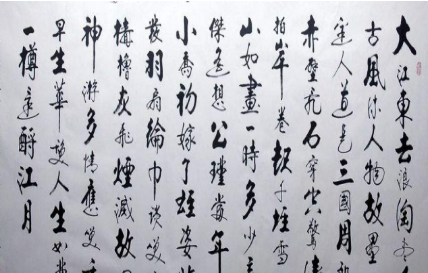 大江東去浪淘
古風流人物故壘
邊人道是三國周
赤壁亂石穿空驚
拍岸卷起千堆雪
山如畫一時多少
傑遙想公瑾當年
小喬初嫁了雄姿
發羽扇綸巾談笑
檣櫓灰飛煙滅故
神游多情應笑
早生華髮人生如
一樽還酹江月